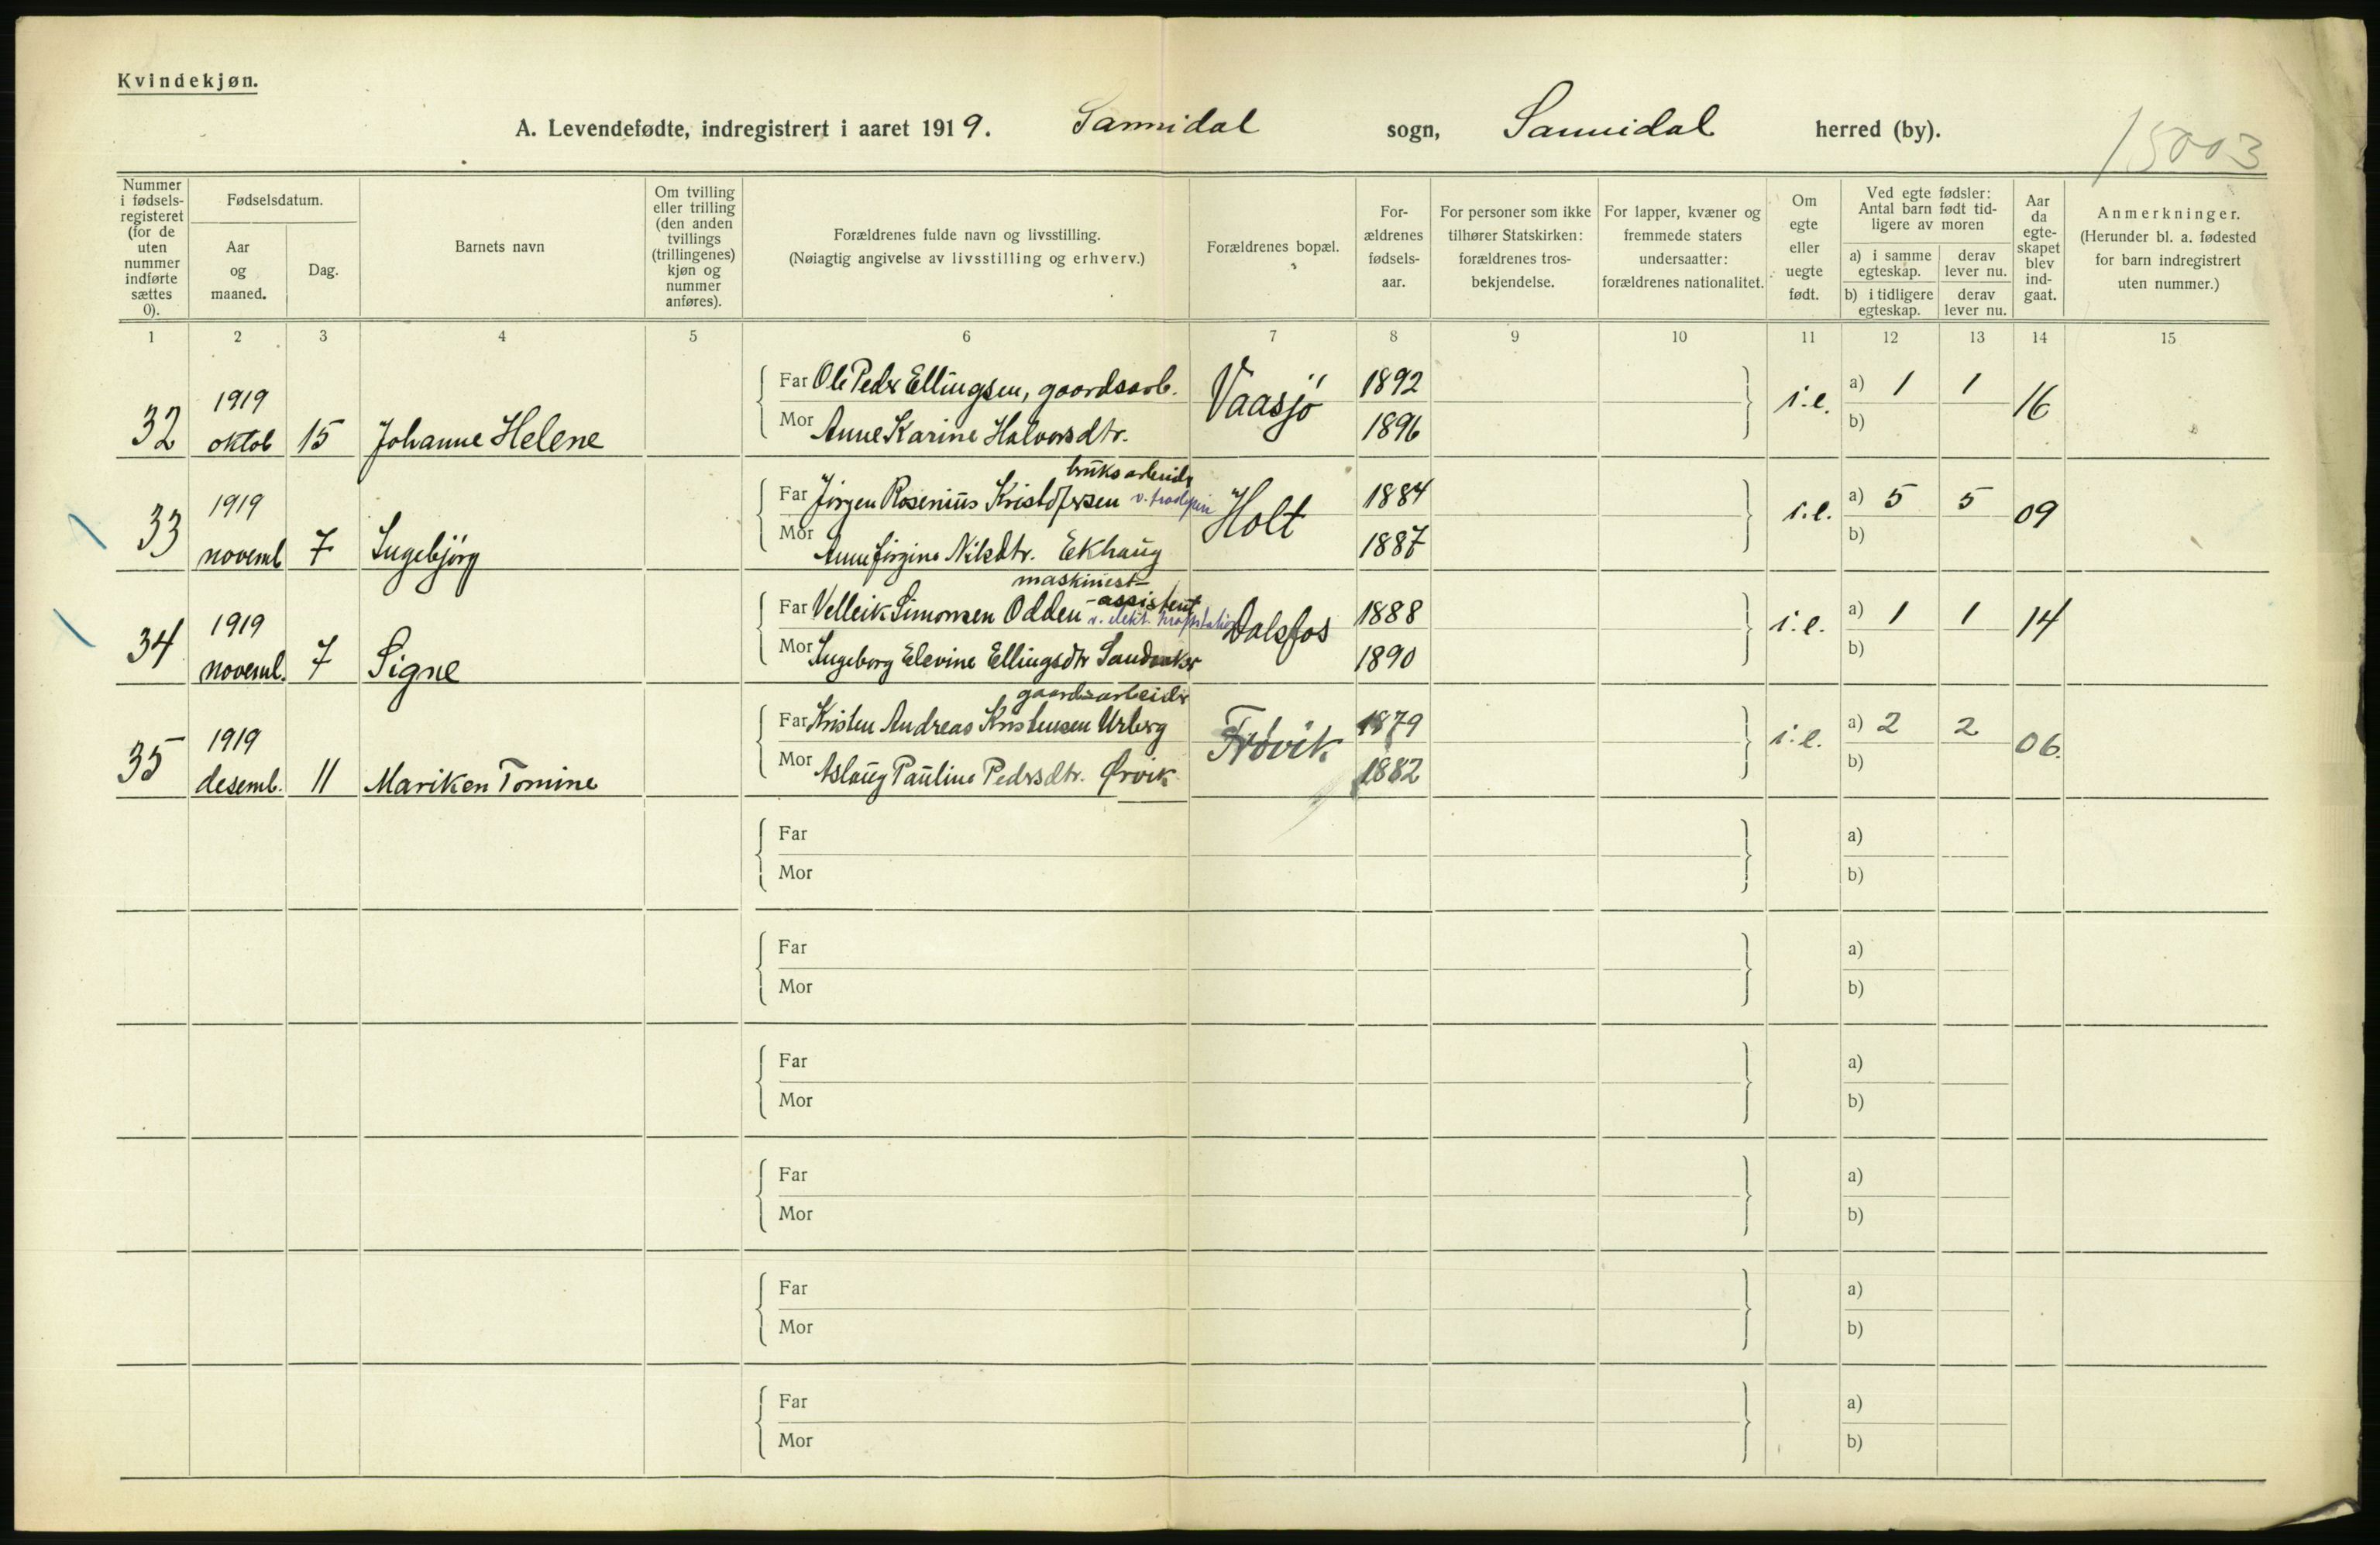 Kvindekjøn.
A. Levendefødte, indregistrert i aaret 1919. Sannidal sogn, Sannidal herred (by).
15003
Nummer i fødsels-registeret (for de uten nummer indførte sættes 0).
Fødselsdatum.
Aar og maaned.
Dag.
Barnets navn
Om tvilling eller trilling (den anden tvillings (trillingenes) kjøn og nummer anføres).
Forældrenes fulde navn og livsstilling.
(Nøiagtig angivelse av livsstilling og erhverv.)
Forældrenes bopæl.
For-ældrenes fødsels-aar.
For personer som ikke tilhører Statskirken: forældrenes tros-bekjendelse.
For lapper, kvæner og fremmede staters undersaatter: forældrenes nationalitet.
Om egte eller uegte født.
Ved egte fødsler: Antal barn født tid-ligere av moren
a) i samme egteskap.
derav lever nu.
b) i tidligere egteskap.
derav lever nu.
Aar da egte-skapet blev ind-gaat.
Anmerkninger.
(Herunder bl. a. fødested for barn indregistrert uten nummer.)
1 2 3 4 5 6 7 8 9 10 11 12 13 14 15
32 1919 oktob 15 Johanne Helene
Far Ole Peder Ellingsen, gaardsarb. Vaasjö 1892 i.e. a) 1 1 16
Mor Anne Karine Halvorsdtr. 1896 b)
bruksarbeider
33 1919 novemb 7 Ingebjörg
Far Jörgen Rosenius Kristofersen v. træsliperi Holt 1884 i.e. a) 5 5 09
Mor Anne Jörgine Nilsdtr. Ekhaug 1887 b)
maskinist-
-assistent
34 1919 novemb. 7 Signe
Far Velleik Simonsen Odden v. elekt. kraftstation Dalsfos 1888 i.e. a) 1 1 14
Mor Ingeborg Elevine Ellingsdtr Sandaker 1890 b)
gaardsarbeider
35 1919 desemb. 11 Mariken Tomine
Far Kristen Andreas Kristensen Urberg Frövik 1879 i.e. a) 2 2 06.
Mor Aslaug Pauline Pedersdtr. Ørvik 1882 b)
Far a)
Mor b)
Far a)
Mor b)
Far a)
Mor b)
Far a)
Mor b)
Far a)
Mor b)
Far a)
Mor b)